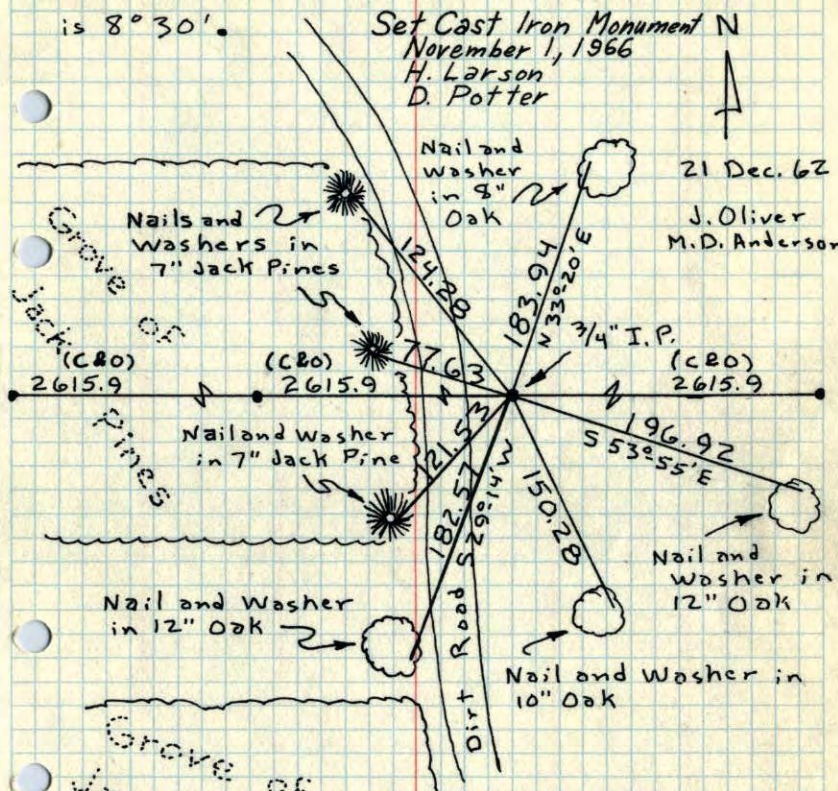 is 8°30'.
Set Cast Iron Monument
November 1, 1966
H. Larson
D. Potter
N
21 Dec. 62
J. Oliver
M.D. Anderson
Nail and
Washer
in 8"
Oak
Nails and
Washers in
7" Jack Pines
Grove of
Jack
Pines
124.28
183.94
N 33°-20' E
3/4" I.P.
77.63
(C&O)
2615.9
(C&O)
2615.9
(C&O)
2615.9
Nail and Washer
in 7" Jack Pine
121.53
182.57
S 29°-14' W
196.92
S 53°-55' E
150.28
Nail and
Washer in
12" Oak
Nail and Washer
in 12" Oak
Nail and Washer in
10" Oak
Dirt Road
Grove of